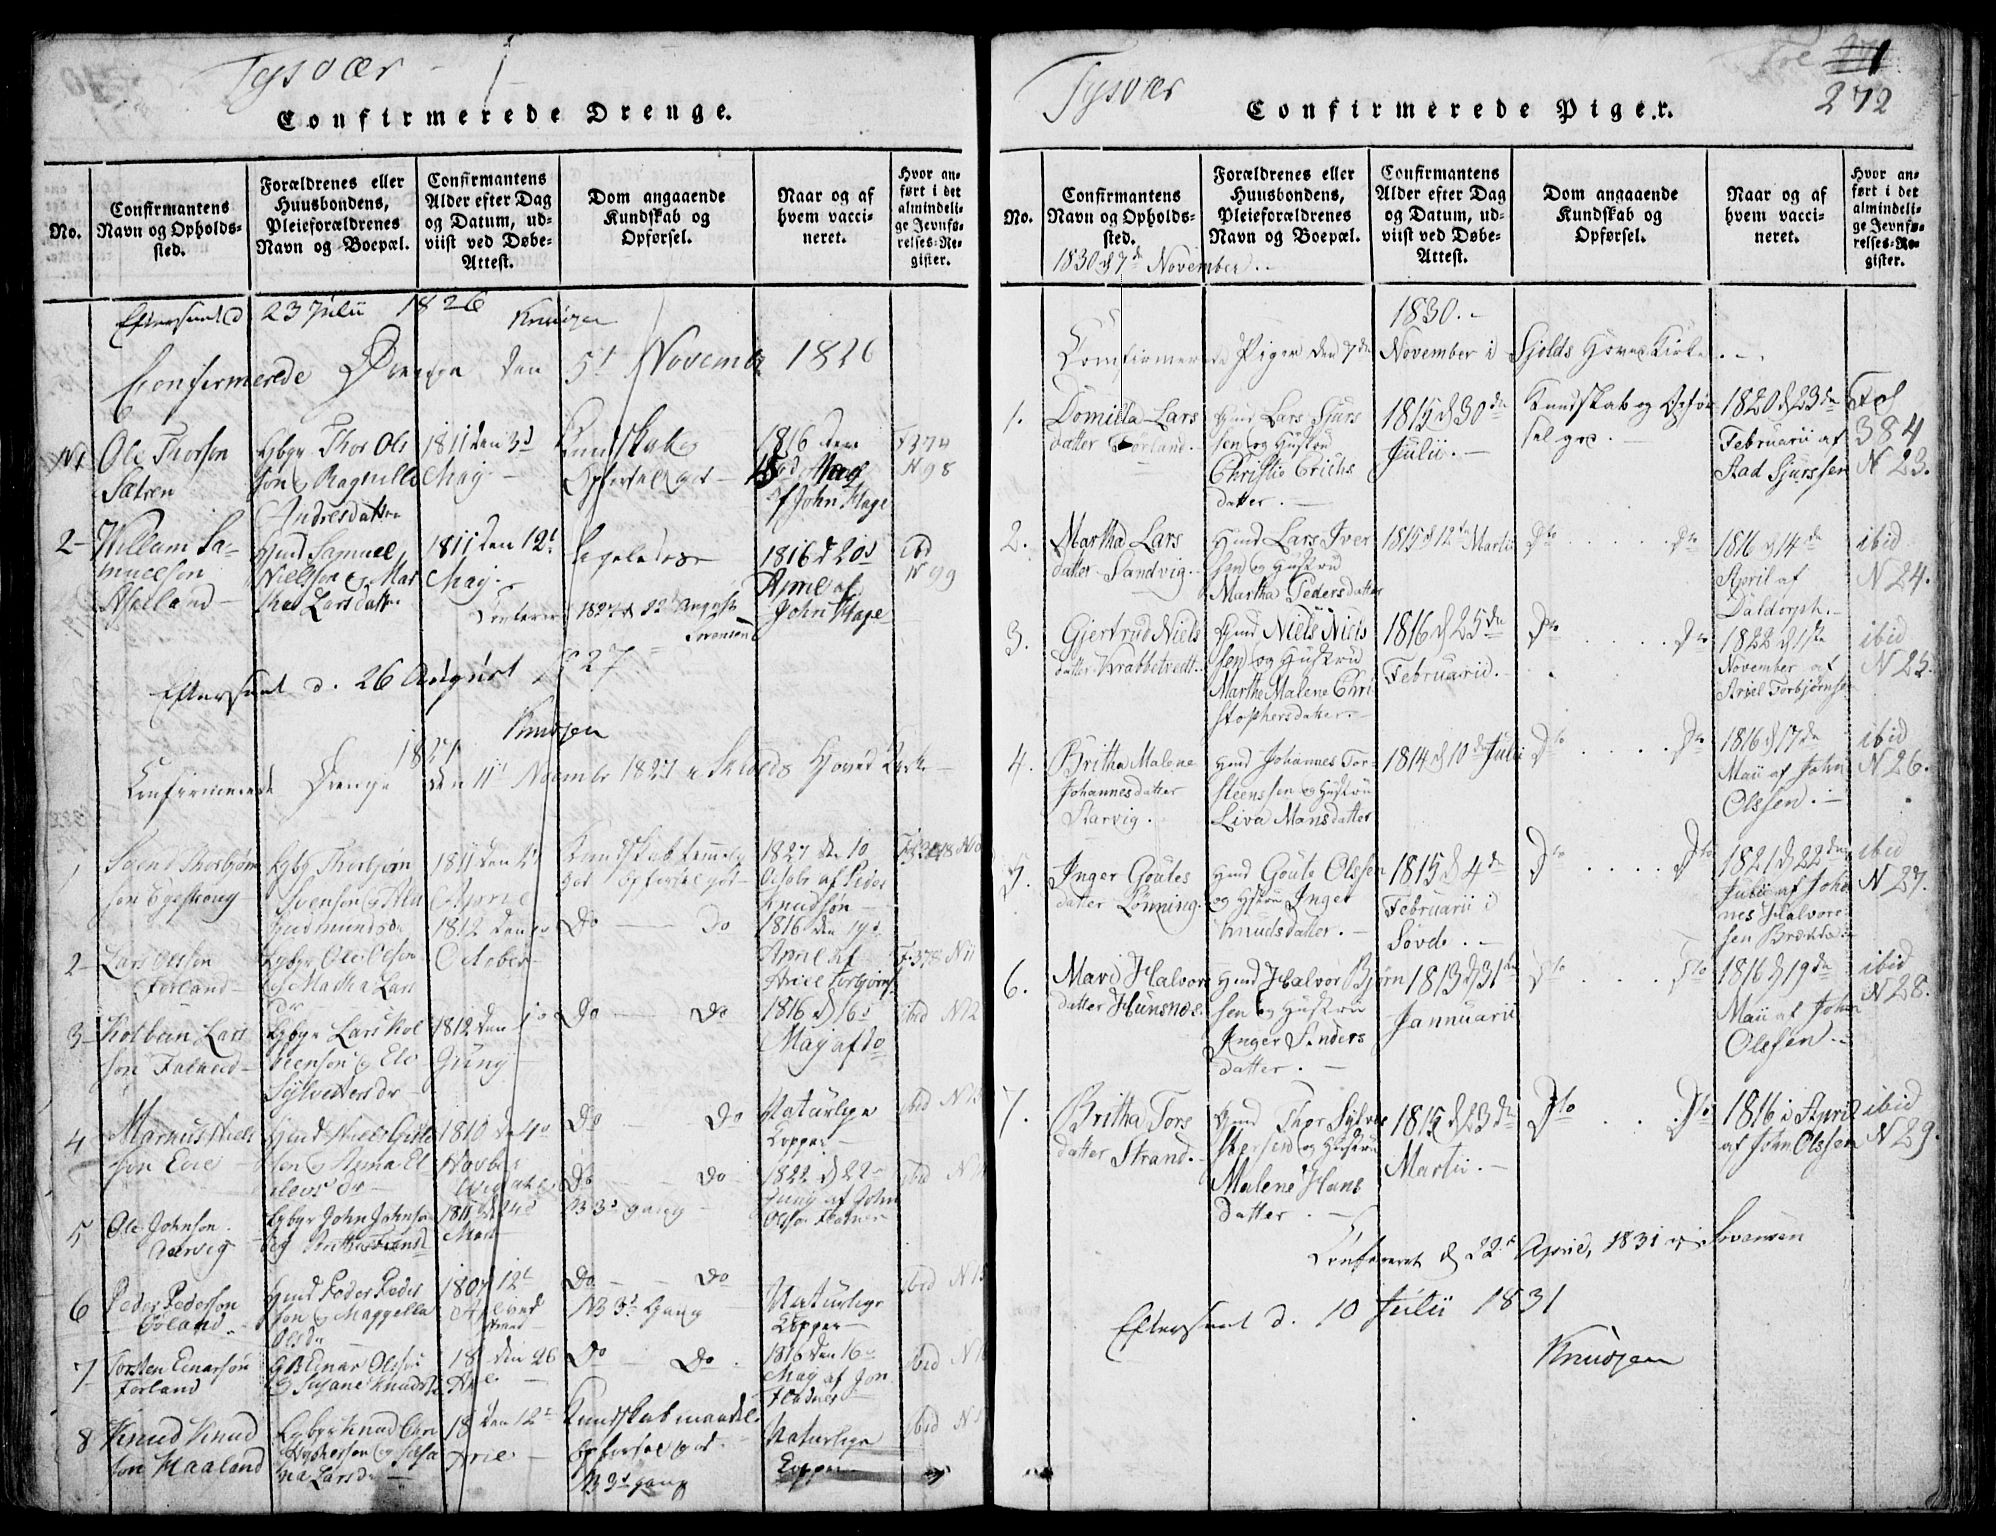 Tysvær
Confirmerede Drenge.
No.
Confirmantens Navn og Opholdssted.
Forældrenes eller Huusbondens, Pleieforældrenes Navn og Boepæl.
Confirmantens Alder efter Dag og Datum, udviist ved Døbe-Attest.
Dom angaaende Kundskab og Opførsel.
Naar og af hvem vaccineret.
Hvor anført i det almindelige Jevnførelses-Register.
Efterseet d 23 Julii 1826
Knudzen
Confirmerede Drenge den 5t Novembr 1826
N1
Ole Thorson
Sætren
Gbgr Thor Ols
son og Ragnille
Andresdatter
1811 den 3d
May
Kundskab og
Opførsel god
1816 den
May
af John Hage
F 374
N 98
2
Willam Sa-
muelson
Gmd Samuel
Nielsson og Mar
tha Larsdatter
1811 den 12t
May
Ligeledes
1816 d 20d
April af
John Hage
ibd
N 99
1827 d 22 August
Sørensen
Efterseet d. 26 August 1827
Knudzen
1827
Confirmerede Drenge den 11t November 1827 i Skiolds Hoved Kirke
1
Svend Thorbjørn
Gbgr Thorbjørn
Svenson og
Gudmundsdr
1811 den
April
Kundskab temmelig
god Opførsel god
1827 den 10
Octobr af Peder
Knudson
2
Lars Olsson
Førland
Gbgr Ole Olson
og Martha Lars
dr
1812 den
October
Do Do
1816 den 19d
April af
Ariel Torbjørns
F 378 N 11
3
Kolbein Lars
son
Gbgr Lars Kol
beenson og
Sylvestersdr
1812 den
Juny
Do Do
1816 d 16d
May af do
ibid N 12
4
Markus Niels
son
Gmd Niels
son og Anna El
levs dr
1810 d 4d
Novbr
Do Do
Naturlige
Kopper
ibid N 13
5
Ole Johnson
Gbgr John Johnson
1811 d 24d
Mart
Do Do
NB 3d gang
1822 d 22
Juny af John
Olson
ibid N 14
6
Peder Pederson
Gmd Peder Peder
son og Maggella
Olsdr
1807 12t
Do Do
NB 3d Gang
Naturlige
Kopper
ibid N 15
7
Torsten Einarson
Førland
GB Einar Olsson
og Susane Knudsdr
18 den 26
Do Do
1816 den 16
May af Jon
ibid N 16
8
Knud Knud
son Maaland
Gbgr Knud Chri
stophersen og
na Larsdr
18 den 12t
Kundskab maadel.
Opførsel god
NB 3d gang
Naturlige
Kopper
ibid N 17
Tysvær
Confirmerede Piger.
Fol 271
272
No.
Confirmantens Navn og Opholdssted.
Forældrenes eller Huusbondens, Pleieforældrenes Navn og Boepæl.
Confirmantens Alder efter Dag og Datum, udviist ved Døbe-Attest.
Dom angaaende Kundskab og Opførsel.
Naar og af hvem vaccineret.
Hvor anført i det almindelige Jevnførelses-Register.
1830 d 7de November
1830.
Confirmerede Piger den 7de November i Sjolds Hoved Kirke.
1.
Domilla Lars
datter Førland.
Gmd Lars Sjurs
sen og Hustru
Christie Erichs
datter.
1815 d 30de
Julii.
Kundskab og Opfør
sel god.
1820 d 23de
Februarii af
Stad Sjurssen
Fol
384
N 23.
2.
Martha Lars
datter Sandvig.
Gmd Lars Iver
sen og Hustru
Martha Pedersdatter
1815 d 12te Martii
Dto Dto
1816 d 14de
April af
Daldorph.
ibid
N 24.
3.
Gjertrud Niels
datter Krabbetvedt.
Gmd Niels Niels
sen og Hustru
Marthe Malene Chri
stophersdatter.
1816 d 25de
Februarii.
Dto Dto
1822 d 1ste
November af
Ariel Torbjørnsen
ibid
N 25.
4.
Britha Malene
Johannesdatter
Starvig.
Gmd Johannes Tor
steenssen og Hustru
Liva Monsdatter
1814 d 10de Julii
Dto Dto
1816 d 17de
Maii af John
Olssen.
ibid
N 26.
5.
Inger Goutes
datter Lønning.
Gmd Goute Olssen
og Hustru Inger
Knudsdatter.
1815 d 4de
Februarii i
Søvde.
Dto Dto
1821 d 22de
Julii af Johan
nes Halvor
sen
ibid
N 27.
6.
Mari Halvors
datter Hunsnæs.
Gmd Halvor Bjørn
sen og Hustru
Inger Anders
datter.
1813 d 31te
Jannuarii
Dto Dto
1816 d 19de
Maii af John
Olssen.
ibid
N 28.
7.
Britha Tors
datter Strand.
Gmd Thor Sylves
tersen og Hustru
Malene Hans
datter.
1815 d 23de
Martii.
Dto Dto
1816 i April
af John Olssen
ibid
N 29.
Confereret d 22d April, 1831 Sørensen
Efterseet d. 10 Julii 1831
Knudzen